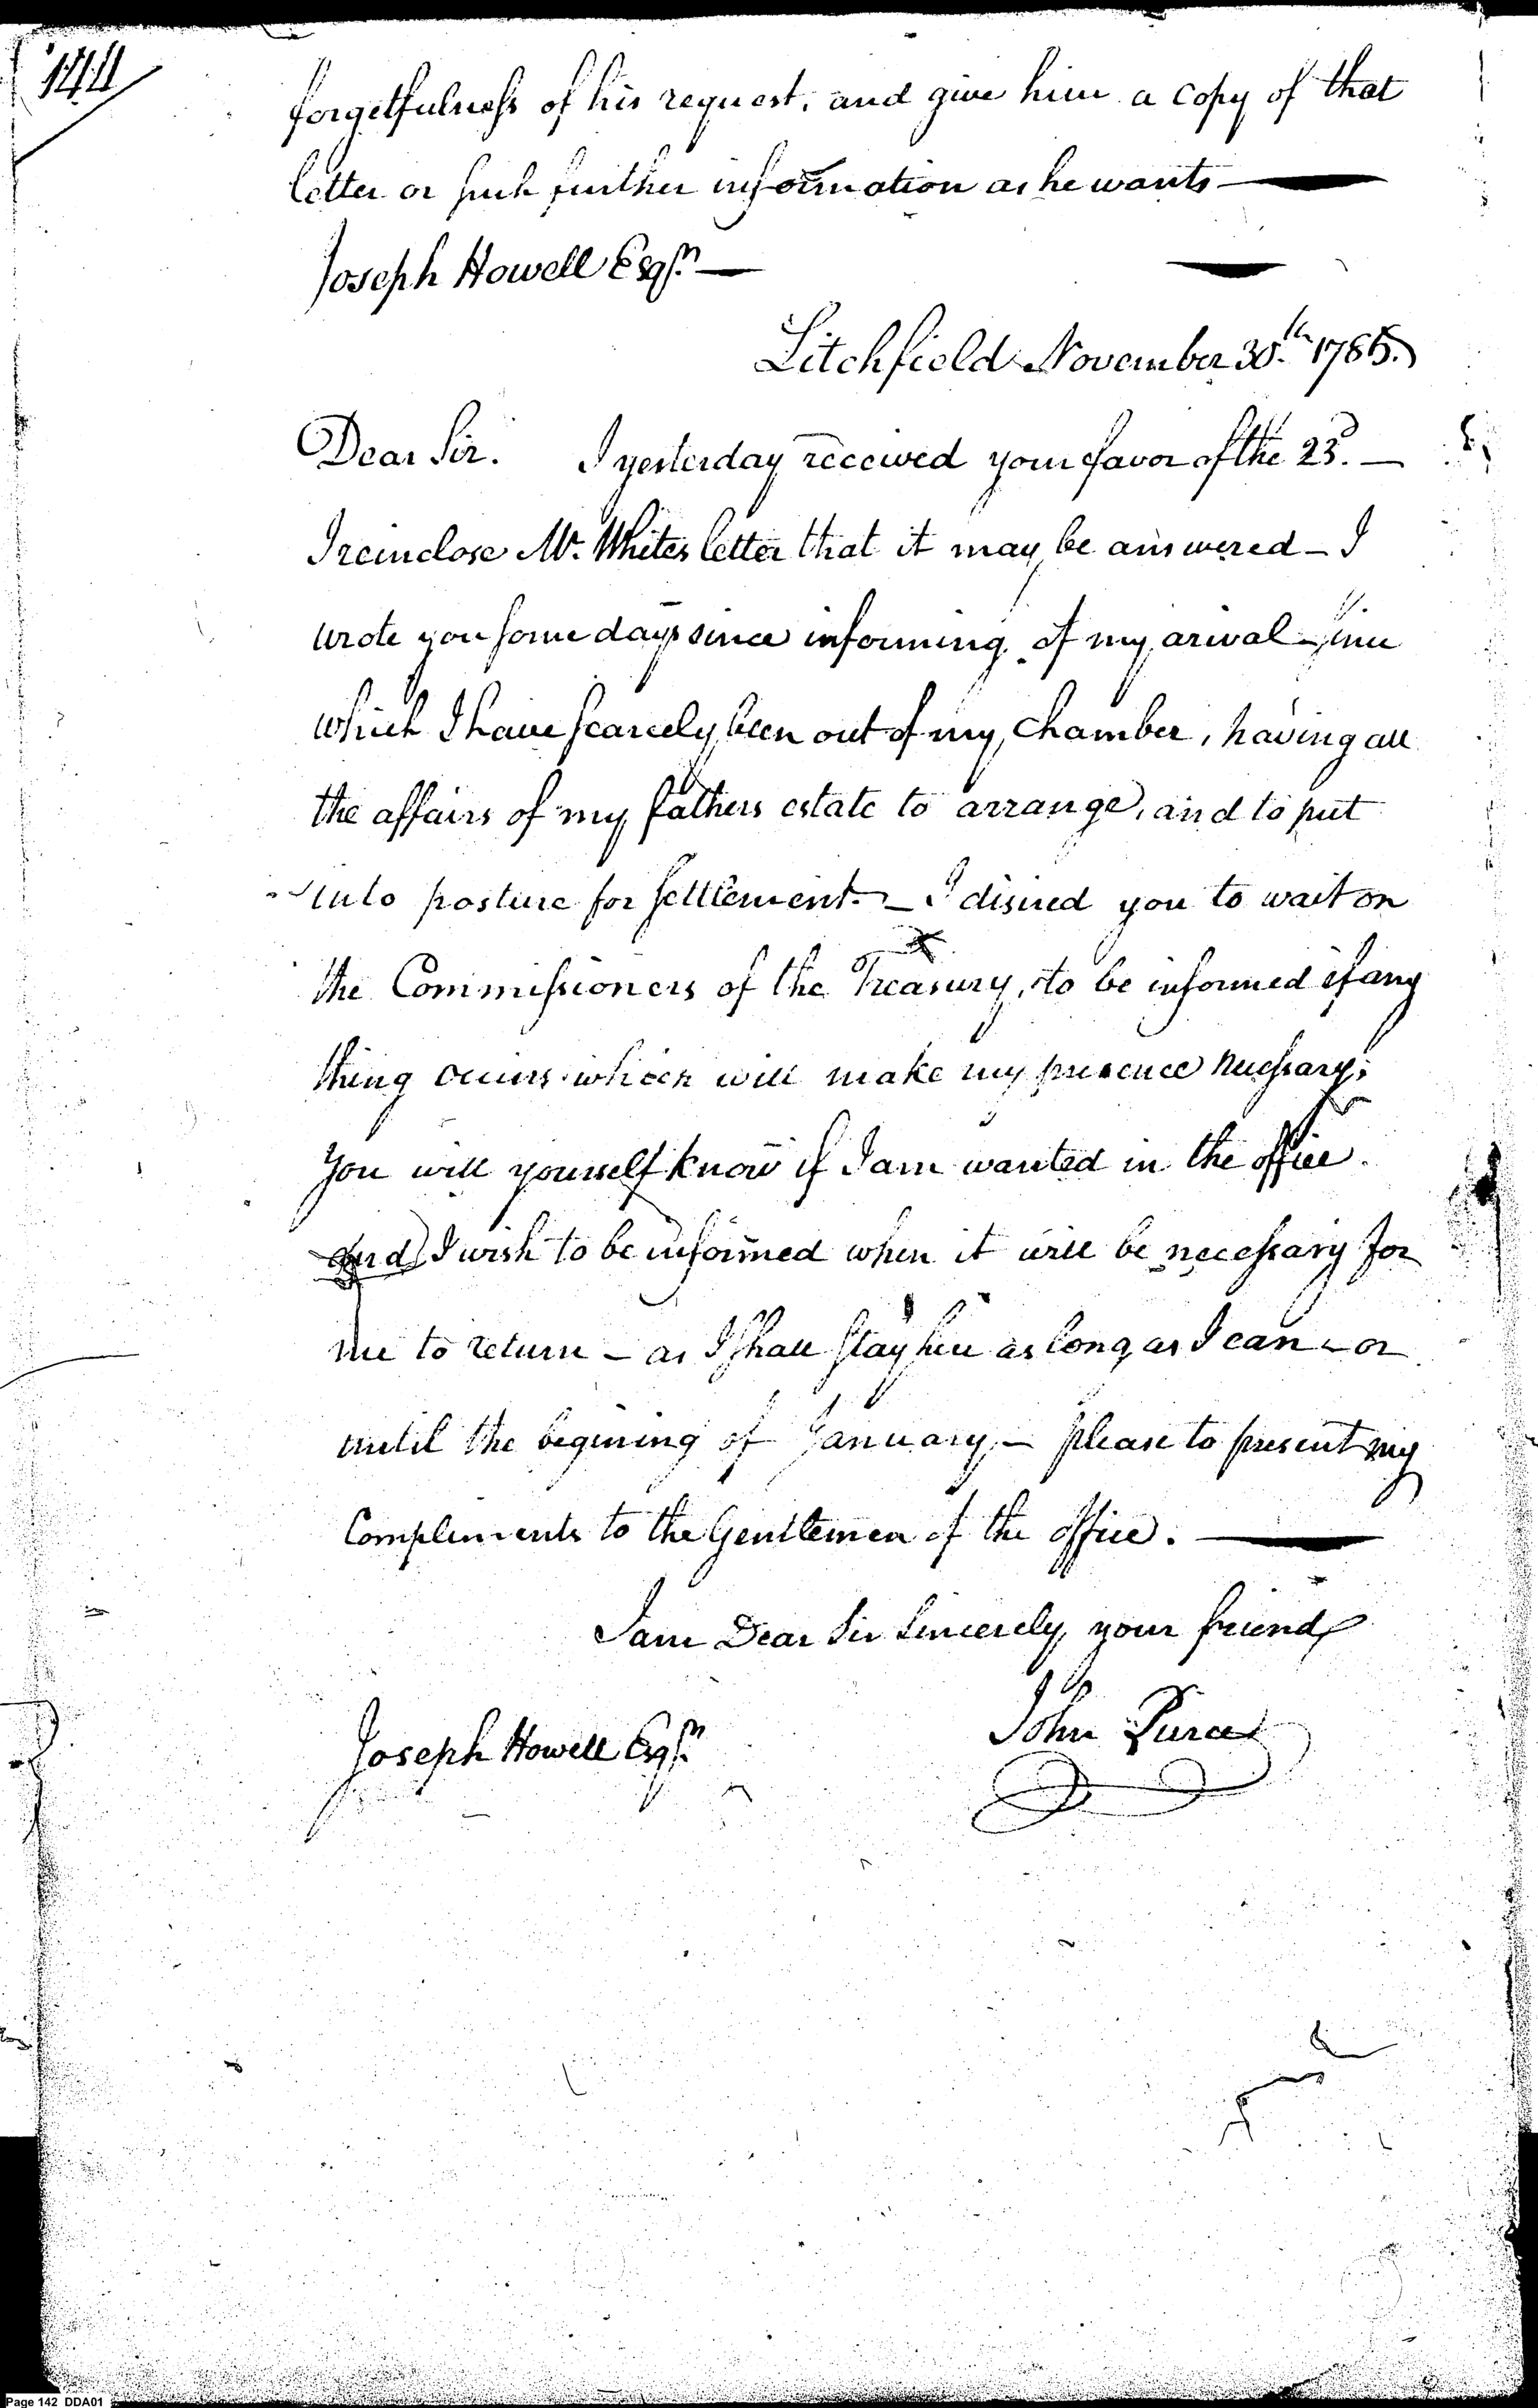 144
forgetfulness of his request, and give him a copy of that
letter or such further information as he wants —
Joseph Howell Esqr. —
Litchfield November 30.th 1785.
Dear Sir. I yesterday received your favor of the 23d. —
I reinclose Mr. Whites letter that it may be answered — I
wrote you some days since informing of my arival — since
which I have scarcely been out of my Chamber, having all
the affairs of my fathers estate to arrange, and to put
into posture for settlement. — I disired you to wait on
the Commissioners of the Treasury, to be informed if any
thing occurs which will make my presence necessary;
You will yourself know if I am wanted in the office.
and I wish to be informed when it will be necessary for
me to return — as I shall stay here as long as I can — or
until the begining of January, — please to present my
Compliments to the Gentlemen of the office. —
I am Dear Sir Sincerely your friend
John Pierce
Joseph Howell Esqr.
Page 142 DDA01